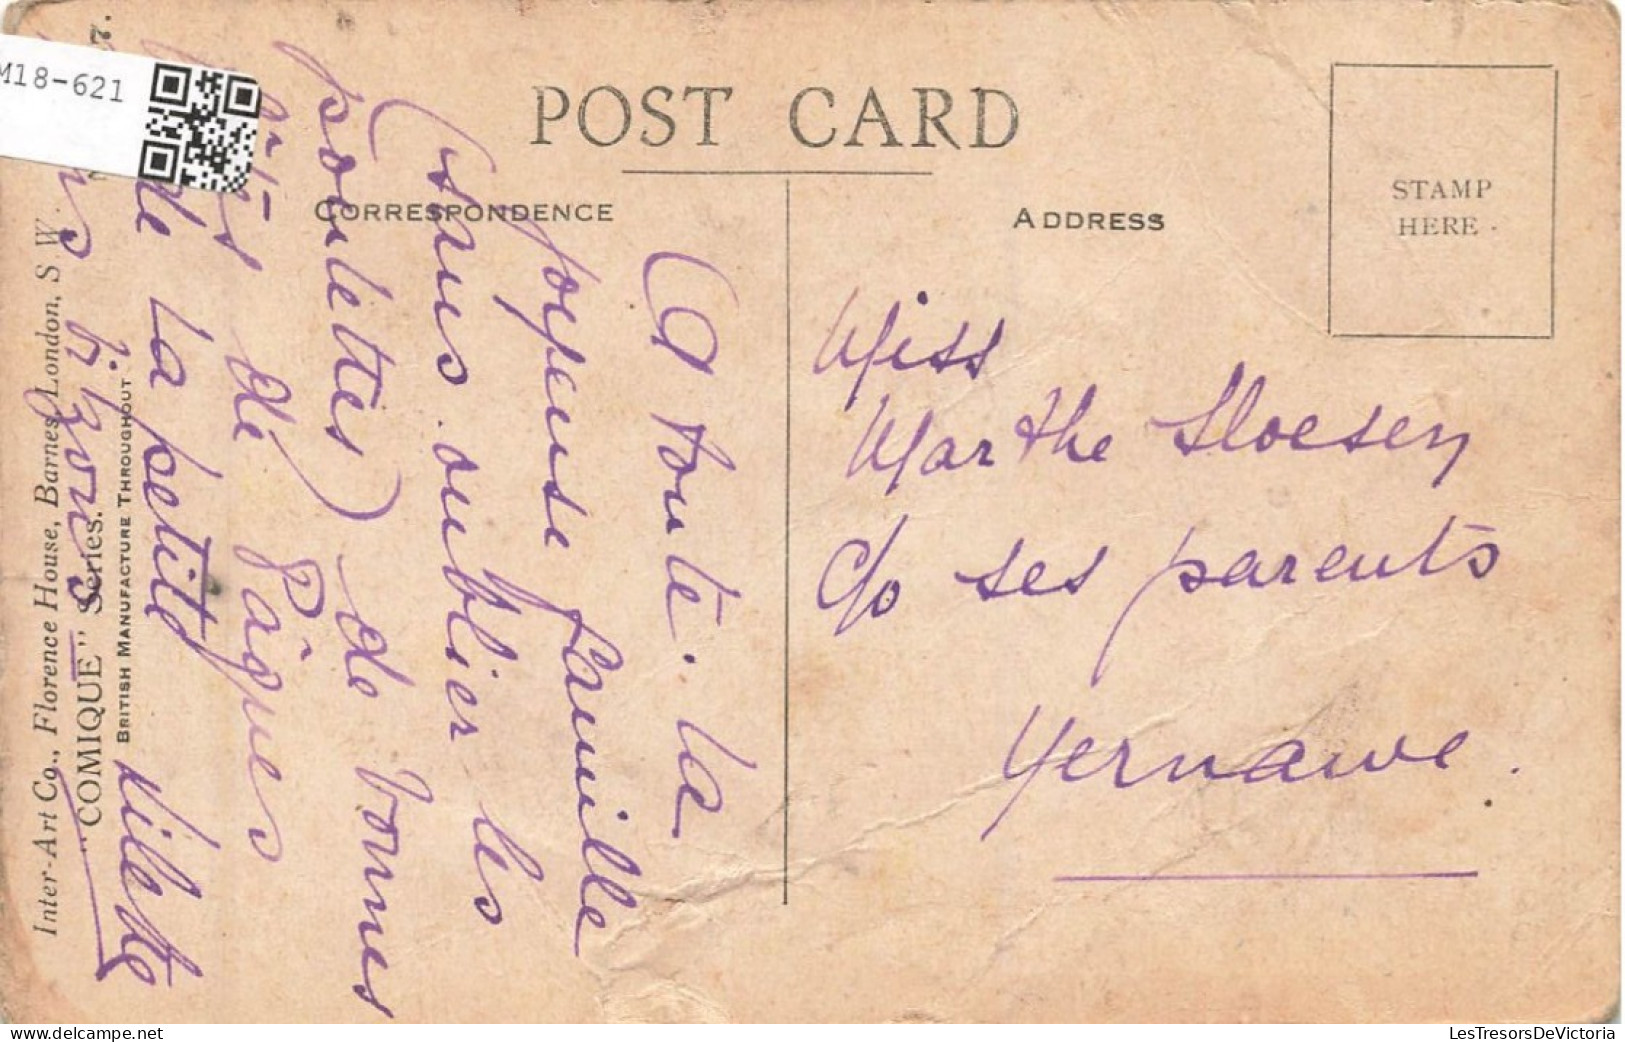 M18-621
POST CARD
CORRESPONDENCE
ADDRESS
STAMP
HERE
A toute la
joyeuse famille
(sans oublier les
poulettes) de bonnes
fêtes de Pâques
de la petite
Miss
Marthe
c/o ses parents
Inter-Art Co., Florence House, Barnes, London, S.W.
"COMIQUE" Series.
BRITISH MANUFACTURE THROUGHOUT
LesTresorsDeVictoria
www.delcampe.net